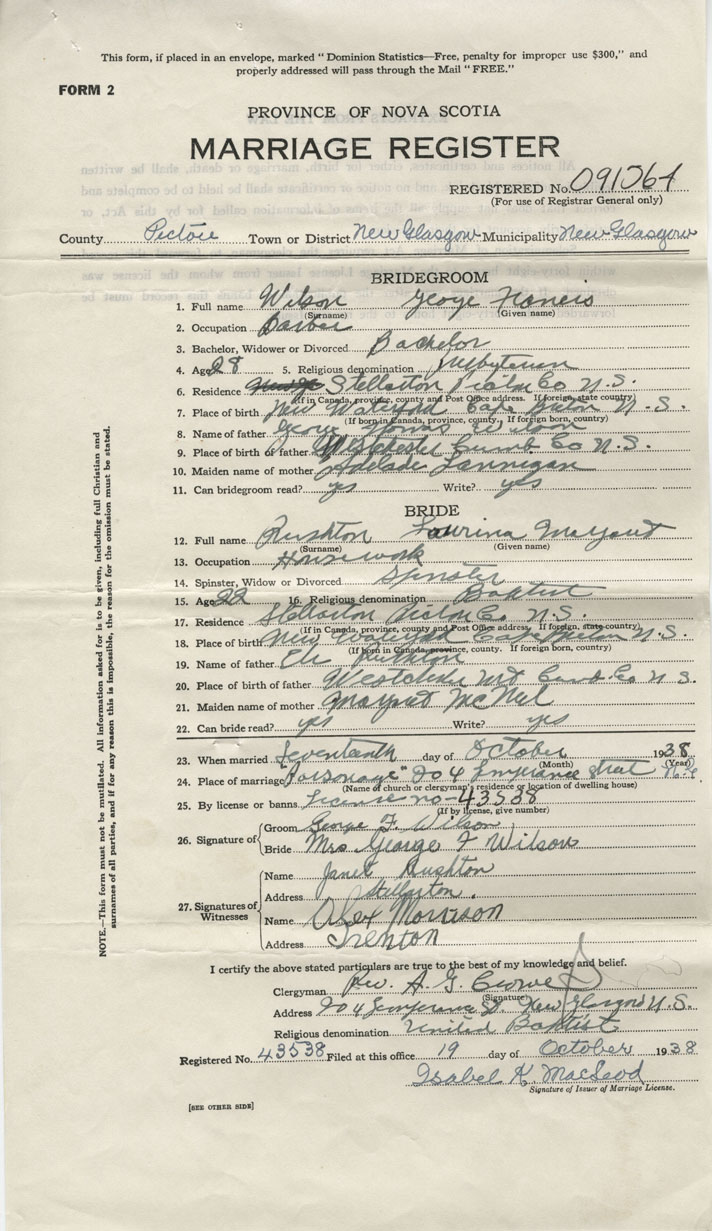 This form, if placed in an envelope, marked "Dominion Statistics—Free, penalty for improper use $300," and
properly addressed will pass through the Mail "FREE."
FORM 2
PROVINCE OF NOVA SCOTIA
MARRIAGE REGISTER
REGISTERED No. 091564
(For use of Registrar General only)
County Pictou Town or District New Glasgow Municipality New Glasgow
BRIDEGROOM
1. Full name Wilson George Francis
(Surname) (Given name)
2. Occupation Barber
3. Bachelor, Widower or Divorced Bachelor
4. Age 28 5. Religious denomination Presbyterian
6. Residence Stellarton Pictou Co N.S.
(If in Canada, province, county and Post Office address. If foreign, state country)
7. Place of birth New Waterford Cape Breton N.S.
(If born in Canada, province, county. If foreign born, country)
8. Name of father George Wilson
9. Place of birth of father Cumb Co N.S.
10. Maiden name of mother Adelade Lannigan
11. Can bridegroom read? yes Write? yes
BRIDE
12. Full name Rushton Laurina Margaret
(Surname) (Given name)
13. Occupation Housework
14. Spinster, Widow or Divorced Spinster
15. Age 22 16. Religious denomination Baptist
17. Residence Stellarton Pictou Co N.S.
(If in Canada, province, county and Post Office address. If foreign, state country)
18. Place of birth New Waterford Cape Breton N.S.
(If born in Canada, province, county. If foreign born, country)
19. Name of father Eli Rushton
20. Place of birth of father Westchester Mt Cumb Co N.S.
21. Maiden name of mother Margaret McNeil
22. Can bride read? yes Write? yes
23. When married Seventeenth day of October 1938
(Month) (Year)
24. Place of marriage "Parsonage" 204 Temperance street N.G.
(Name of church or clergyman's residence or location of dwelling house)
25. By license or banns License no—43538
(If by license, give number)
26. Signature of Groom George F. Wilson
Bride Mrs George F Wilson
27. Signatures of Witnesses
Name Janet Rushton
Address Stellarton.
Name Alex Morrison
Address Trenton
I certify the above stated particulars are true to the best of my knowledge and belief.
Clergyman Rev. A. G. Crowe
(Signature)
Address 204 Temperance St. New Glasgow N.S.
Religious denomination United Baptist
Registered No. 43538 Filed at this office 19 day of October 1938
Isabel K. MacLeod
Signature of Issuer of Marriage License.
[SEE OTHER SIDE]
NOTE.—This form must not be mutilated. All information asked for is to be given, including full Christian and
surnames of all parties, and if for any reason this is impossible, the reason for the omission must be stated.